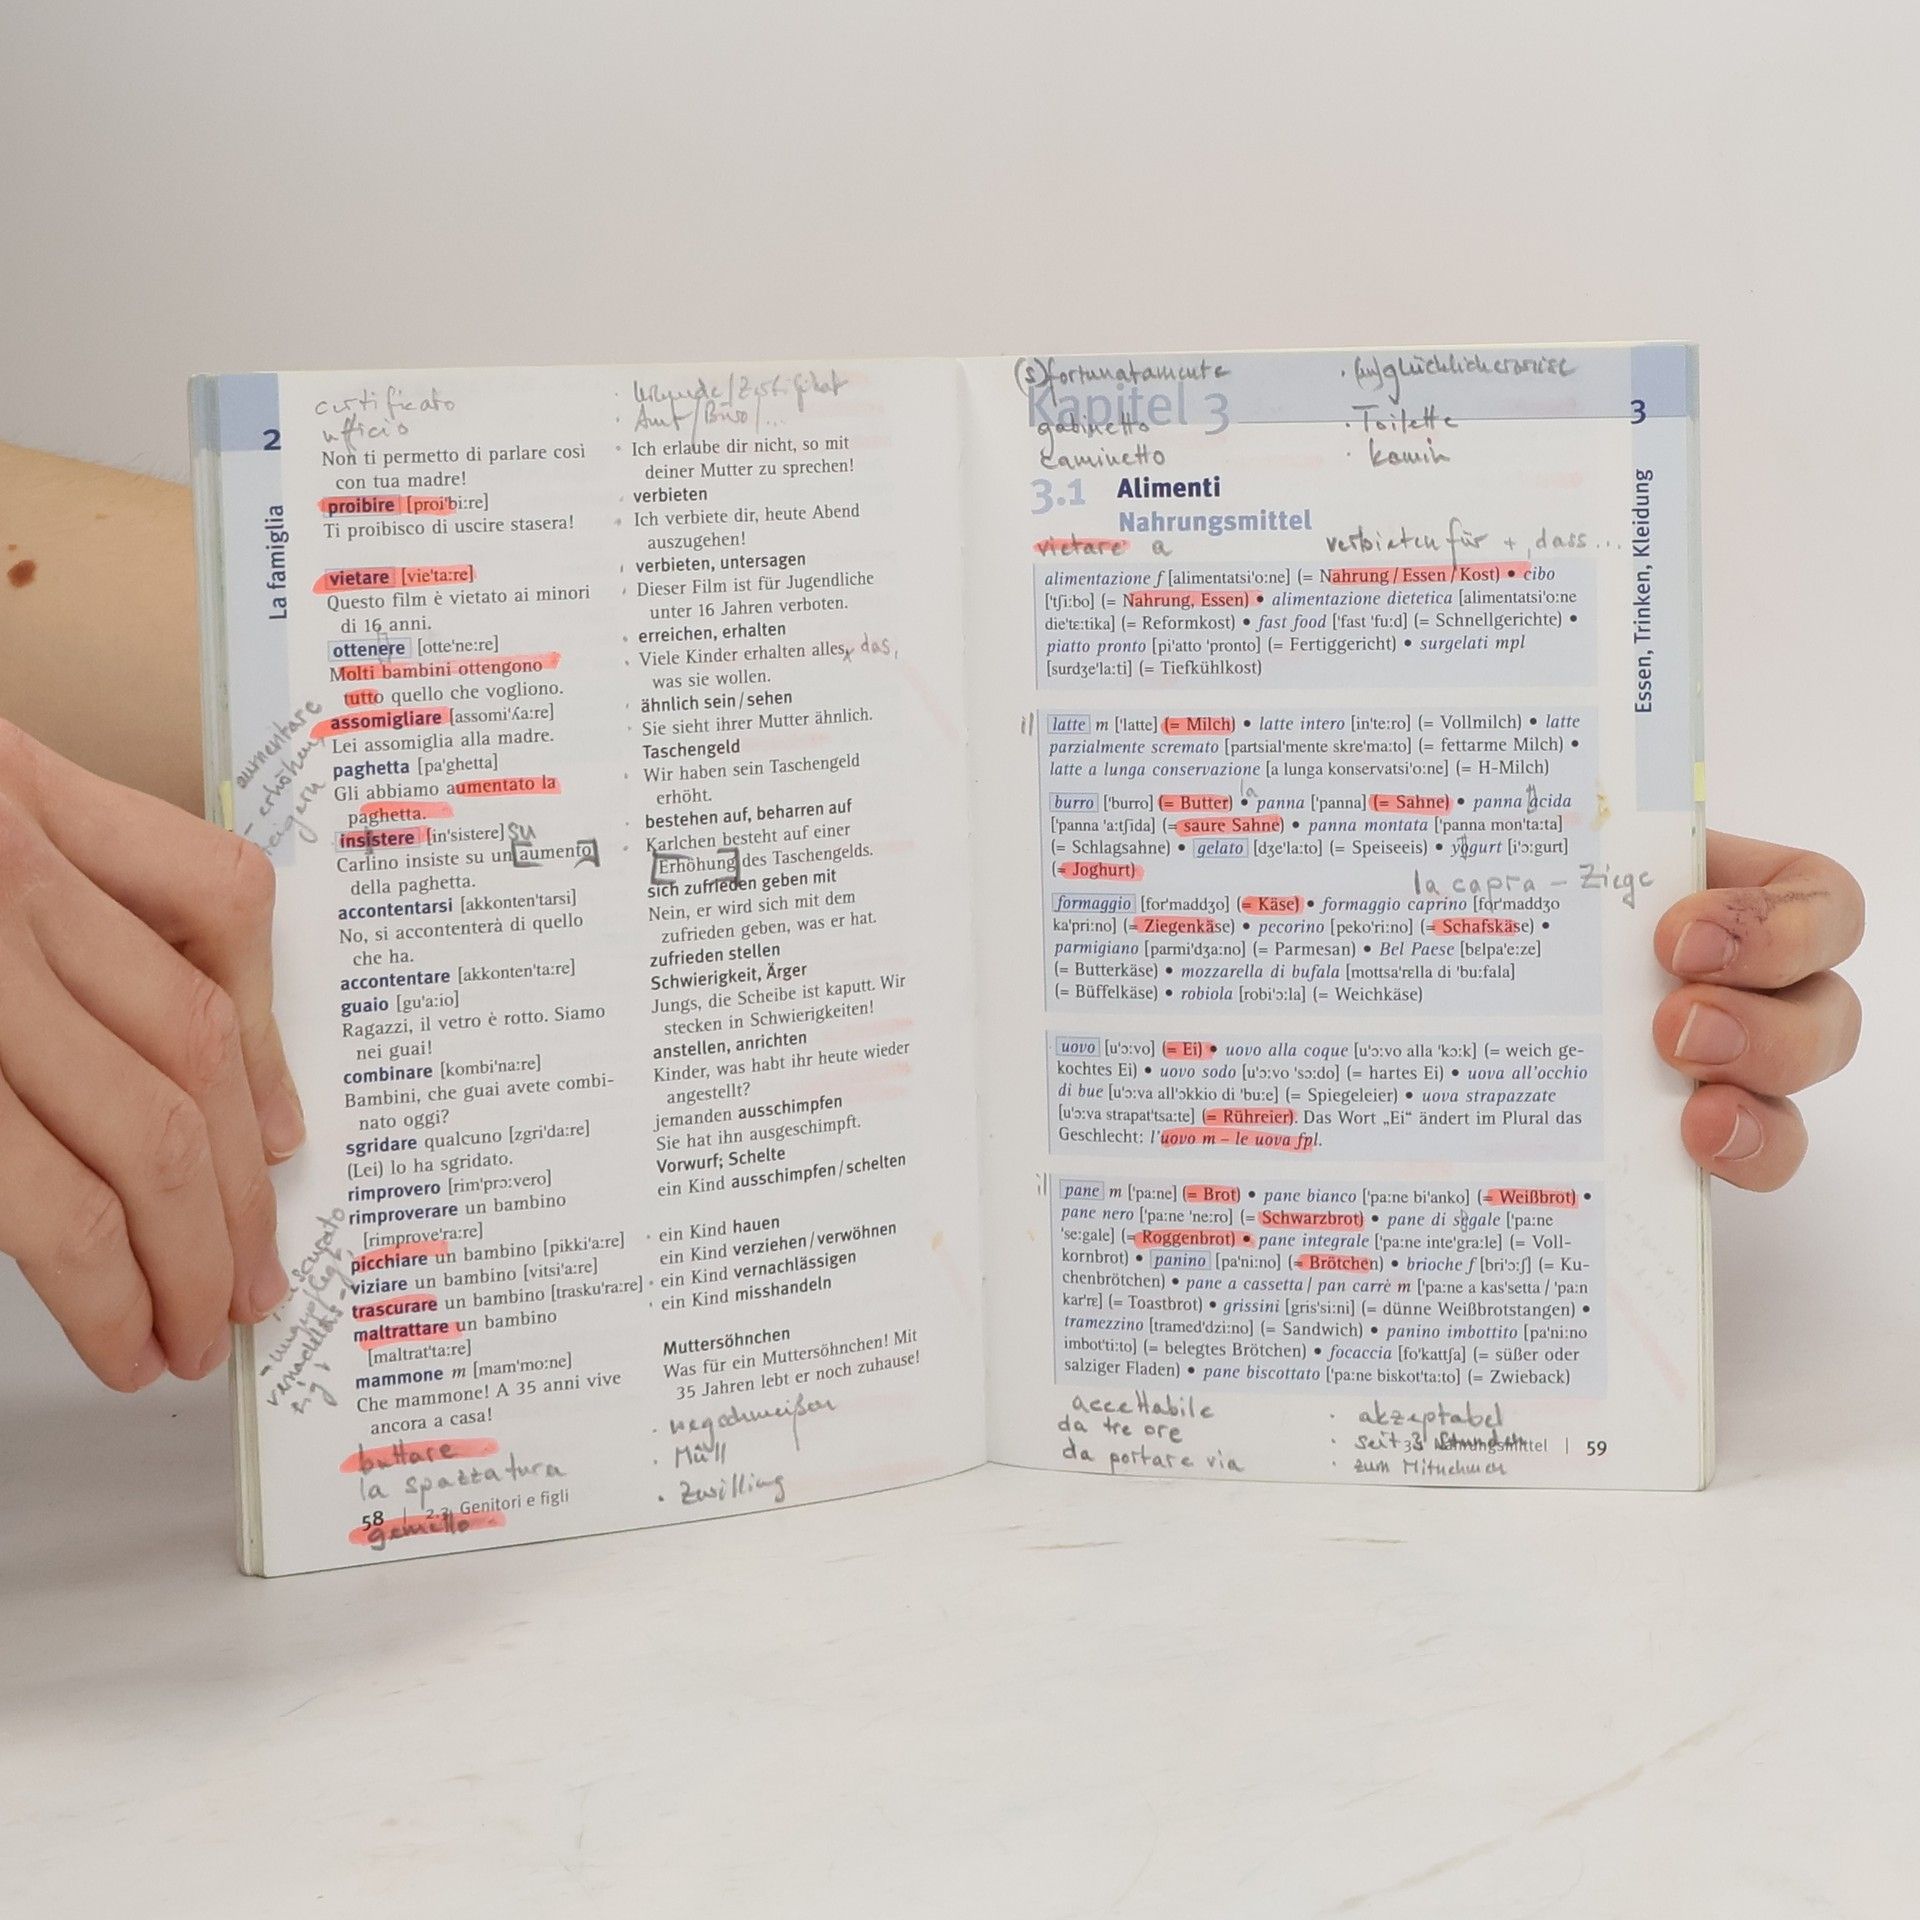 certificato
ufficio
2
La famiglia
Non ti permetto di parlare così
con tua madre!
proibire [proi'bi:re]
Ti proibisco di uscire stasera!
vietare [vie'ta:re]
Questo film è vietato ai minori
di 16 anni.
ottenere [otte'ne:re]
Molti bambini ottengono
tutto quello che vogliono.
assomigliare [assomi'ʎa:re]
Lei assomiglia alla madre.
paghetta [pa'ghetta]
Gli abbiamo aumentato la
paghetta.
insistere [in'sistere] su
Carlino insiste su un aumento
della paghetta.
accontentarsi [akkonten'tarsi]
No, si accontenterà di quello
che ha.
accontentare [akkonten'ta:re]
guaio [gu'a:io]
Ragazzi, il vetro è rotto. Siamo
nei guai!
combinare [kombi'na:re]
Bambini, che guai avete combi-
nato oggi?
sgridare qualcuno [zgri'da:re]
(Lei) lo ha sgridato.
rimprovero [rim'prɔ:vero]
rimproverare un bambino
[rimprove'ra:re]
picchiare un bambino [pikki'a:re]
viziare un bambino [vitsi'a:re]
trascurare un bambino [trasku'ra:re]
maltrattare un bambino
[maltrat'ta:re]
mammone m [mam'mo:ne]
Che mammone! A 35 anni vive
ancora a casa!
buttare
la spazzatura
58 | 2.2 Genitori e figli
gemello
aumentare
- erhöhen,
Urkunde/Zertifikat
Amt/Büro/...
Ich erlaube dir nicht, so mit
deiner Mutter zu sprechen!
verbieten
Ich verbiete dir, heute Abend
auszugehen!
verbieten, untersagen
Dieser Film ist für Jugendliche
unter 16 Jahren verboten.
erreichen, erhalten
Viele Kinder erhalten alles, das,
was sie wollen.
ähnlich sein/sehen
Sie sieht ihrer Mutter ähnlich.
Taschengeld
Wir haben sein Taschengeld
erhöht.
bestehen auf, beharren auf
Karlchen besteht auf einer
Erhöhung des Taschengelds.
sich zufrieden geben mit
Nein, er wird sich mit dem
zufrieden geben, was er hat.
zufrieden stellen
Schwierigkeit, Ärger
Jungs, die Scheibe ist kaputt. Wir
stecken in Schwierigkeiten!
anstellen, anrichten
Kinder, was habt ihr heute wieder
angestellt?
jemanden ausschimpfen
Sie hat ihn ausgeschimpft.
Vorwurf; Schelte
ein Kind ausschimpfen/schelten
ein Kind hauen
ein Kind verziehen/verwöhnen
ein Kind vernachlässigen
ein Kind misshandeln
Muttersöhnchen
Was für ein Muttersöhnchen! Mit
35 Jahren lebt er noch zuhause!
wegschmeißen
Müll
Zwilling
(s)fortunatamente
(un)glücklicherweise
Kapitel 3
gabinetto
Toilette
caminetto
Kamin
3
Essen, Trinken, Kleidung
3.1 Alimenti
Nahrungsmittel
vietare a
verbieten für +, dass...
alimentazione f [alimentatsi'o:ne] (= Nahrung / Essen / Kost) • cibo
['tʃi:bo] (= Nahrung, Essen) • alimentazione dietetica [alimentatsi'o:ne
die'te:tika] (= Reformkost) • fast food ['fast 'fu:d] (= Schnellgerichte) •
piatto pronto [pi'atto 'pronto] (= Fertiggericht) • surgelati mpl
[surdʒe'la:ti] (= Tiefkühlkost)
il latte m ['latte] (= Milch) • latte intero [in'te:ro] (= Vollmilch) • latte
parzialmente scremato [partsial'mente skre'ma:to] (= fettarme Milch) •
latte a lunga conservazione [a lunga konservatsi'o:ne] (= H-Milch)
la
burro ['burro] (= Butter) • panna ['panna] (= Sahne) • panna acida
['panna 'a:tʃida] (= saure Sahne) • panna montata ['panna mon'ta:ta]
(= Schlagsahne) • gelato [dʒe'la:to] (= Speiseeis) • yogurt [i'ɔ:gurt]
(= Joghurt)
la capra - Ziege
formaggio [for'maddʒo] (= Käse) • formaggio caprino [for'maddʒo
ka'pri:no] (= Ziegenkäse) • pecorino [peko'ri:no] (= Schafskäse) •
parmigiano [parmi'dʒa:no] (= Parmesan) • Bel Paese [bɛlpa'e:ze]
(= Butterkäse) • mozzarella di bufala [mottsa'rella di 'bu:fala]
(= Büffelkäse) • robiola [robi'ɔ:la] (= Weichkäse)
uovo [u'ɔ:vo] (= Ei) • uovo alla coque [u'ɔ:vo alla 'kɔ:k] (= weich ge-
kochtes Ei) • uovo sodo [u'ɔ:vo 'sɔ:do] (= hartes Ei) • uova all'occhio
di bue [u'ɔ:va all'ɔkkio di 'bu:e] (= Spiegeleier) • uova strapazzate
[u'ɔ:va strapat'tsa:te] (= Rühreier). Das Wort „Ei“ ändert im Plural das
Geschlecht: l'uovo m – le uova fpl.
il pane m ['pa:ne] (= Brot) • pane bianco ['pa:ne bi'anko] (= Weißbrot) •
pane nero ['pa:ne 'ne:ro] (= Schwarzbrot) • pane di segale ['pa:ne
'se:gale] (= Roggenbrot) • pane integrale ['pa:ne inte'gra:le] (= Voll-
kornbrot) • panino [pa'ni:no] (= Brötchen) • brioche f [bri'ɔ:ʃ] (= Ku-
chenbrötchen) • pane a cassetta / pan carrè m ['pa:ne a kas'setta / 'pa:n
kar'rɛ] (= Toastbrot) • grissini [gris'si:ni] (= dünne Weißbrotstangen) •
tramezzino [tramed'dzi:no] (= Sandwich) • panino imbottito [pa'ni:no
imbot'ti:to] (= belegtes Brötchen) • focaccia [fo'kattʃa] (= süßer oder
salziger Fladen) • pane biscottato ['pa:ne biskot'ta:to] (= Zwieback)
accettabile
akzeptabel
da tre ore
seit 3 Stunden
Nahrungsmittel | 59
da portare via
zum Mitnehmen